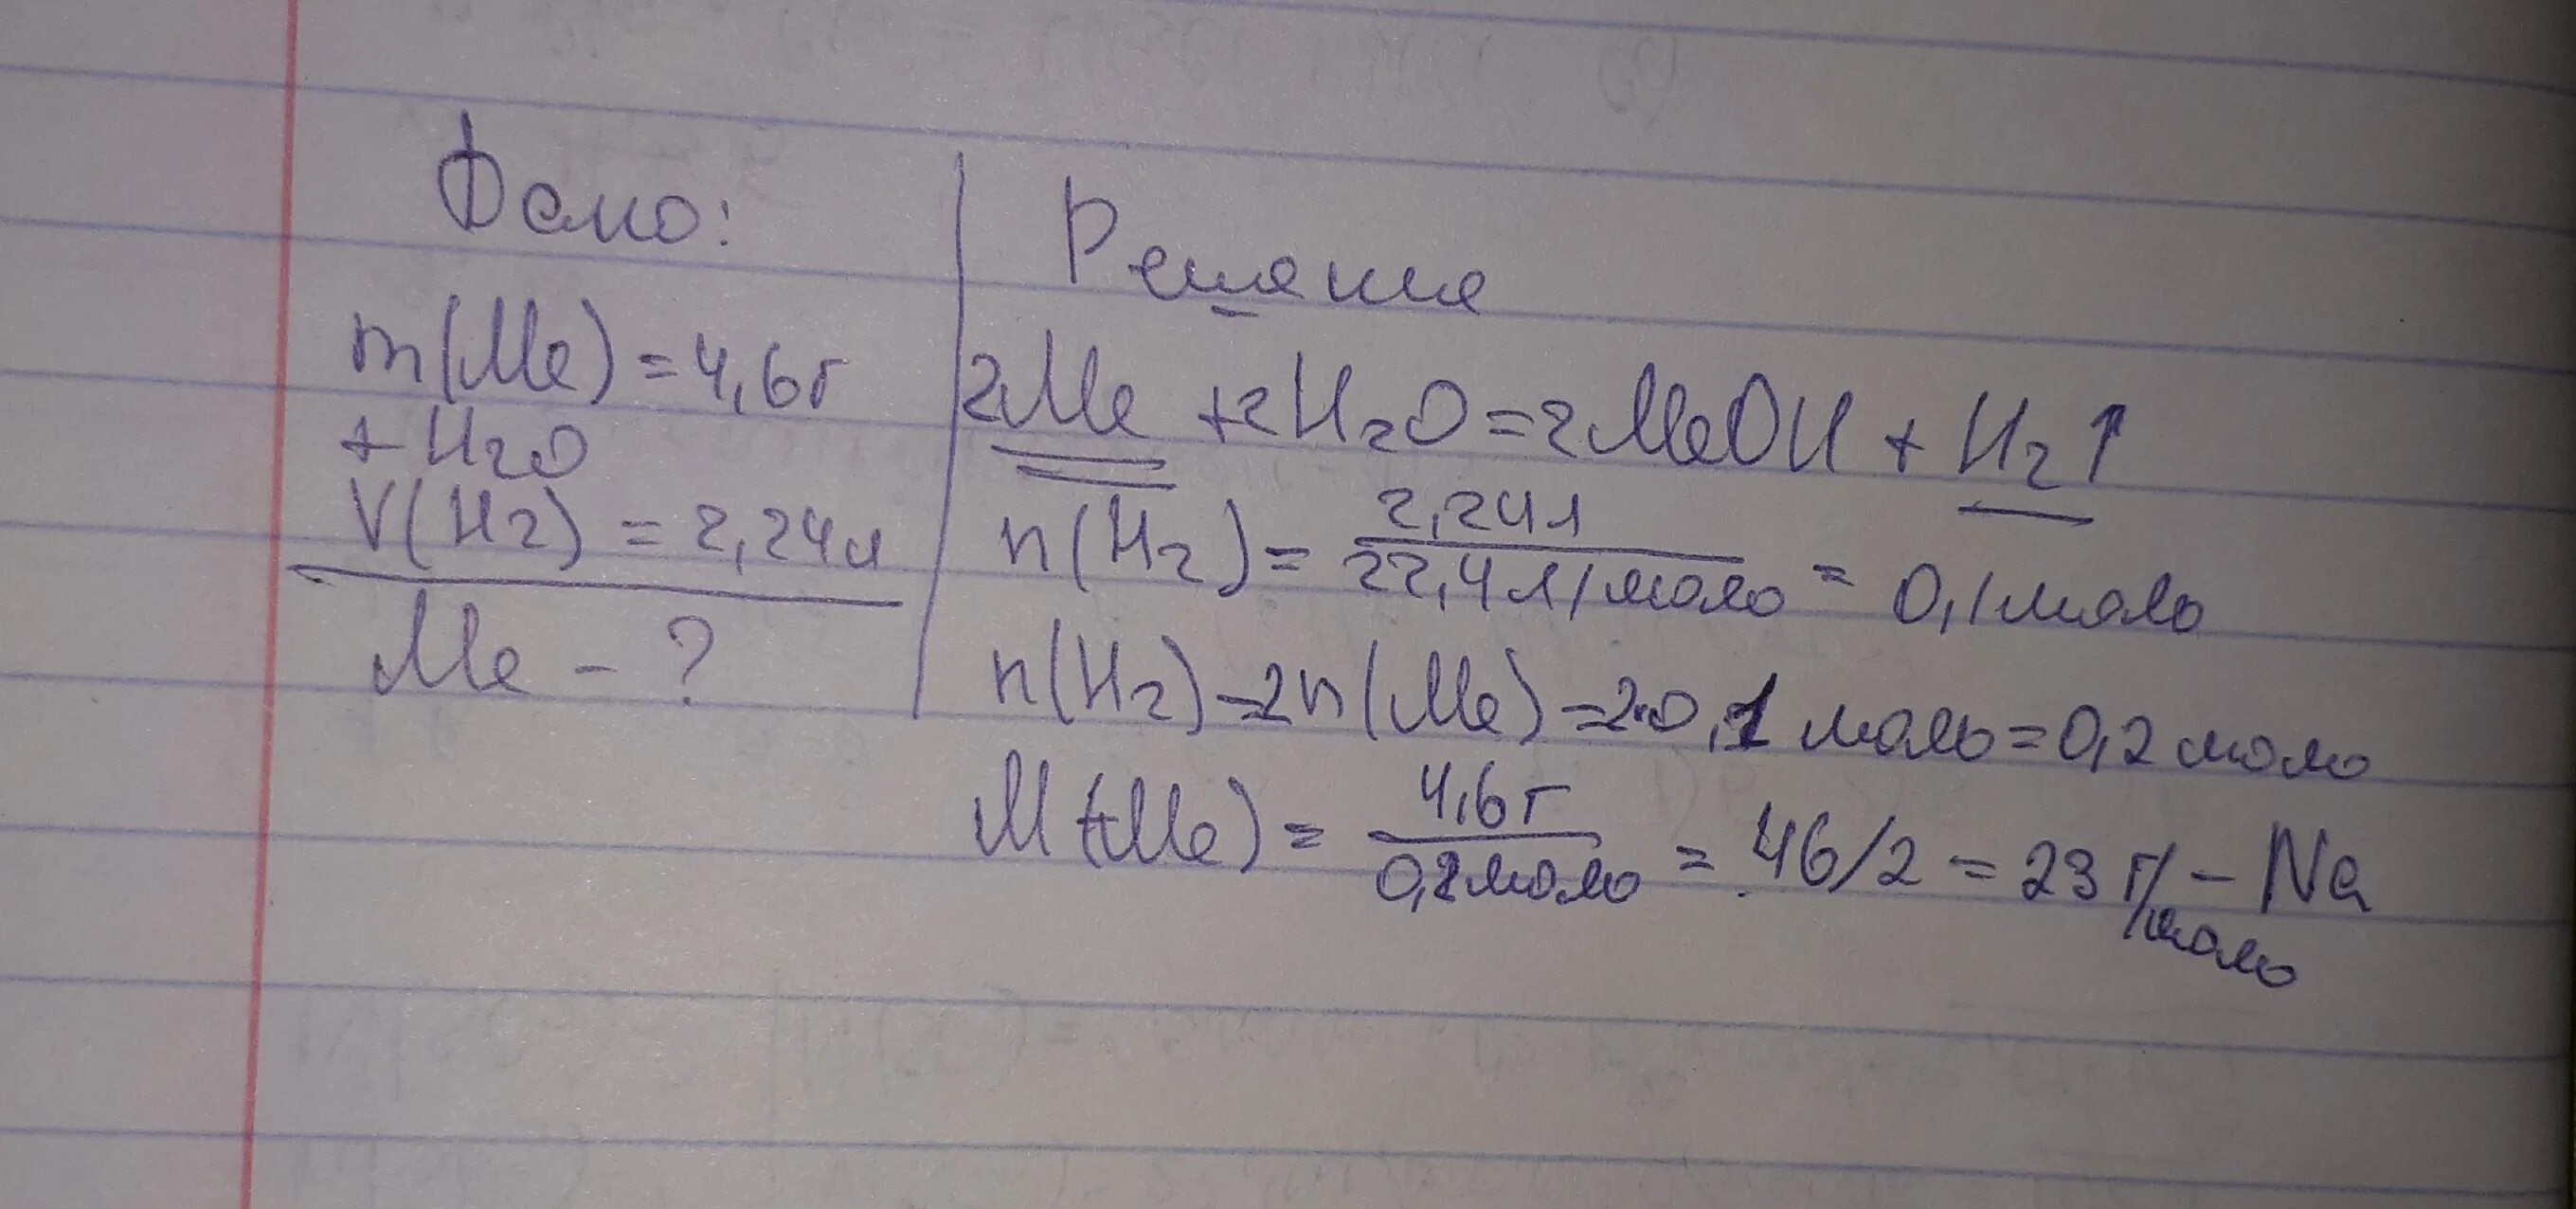 Дано:
m(Me) = 4,6г
+ H2O
V(H2) = 2,24л
Me - ?
Решение
2Me + 2H2O = 2MeOH + H2↑
n(H2) = 2,24л / 22,4л/моль = 0,1моль
n(H2) - 2n(Me) = 2·0,1 моль = 0,2 моль
M(Me) = 4,6г / 0,2моль = 46/2 = 23 г/моль - Na